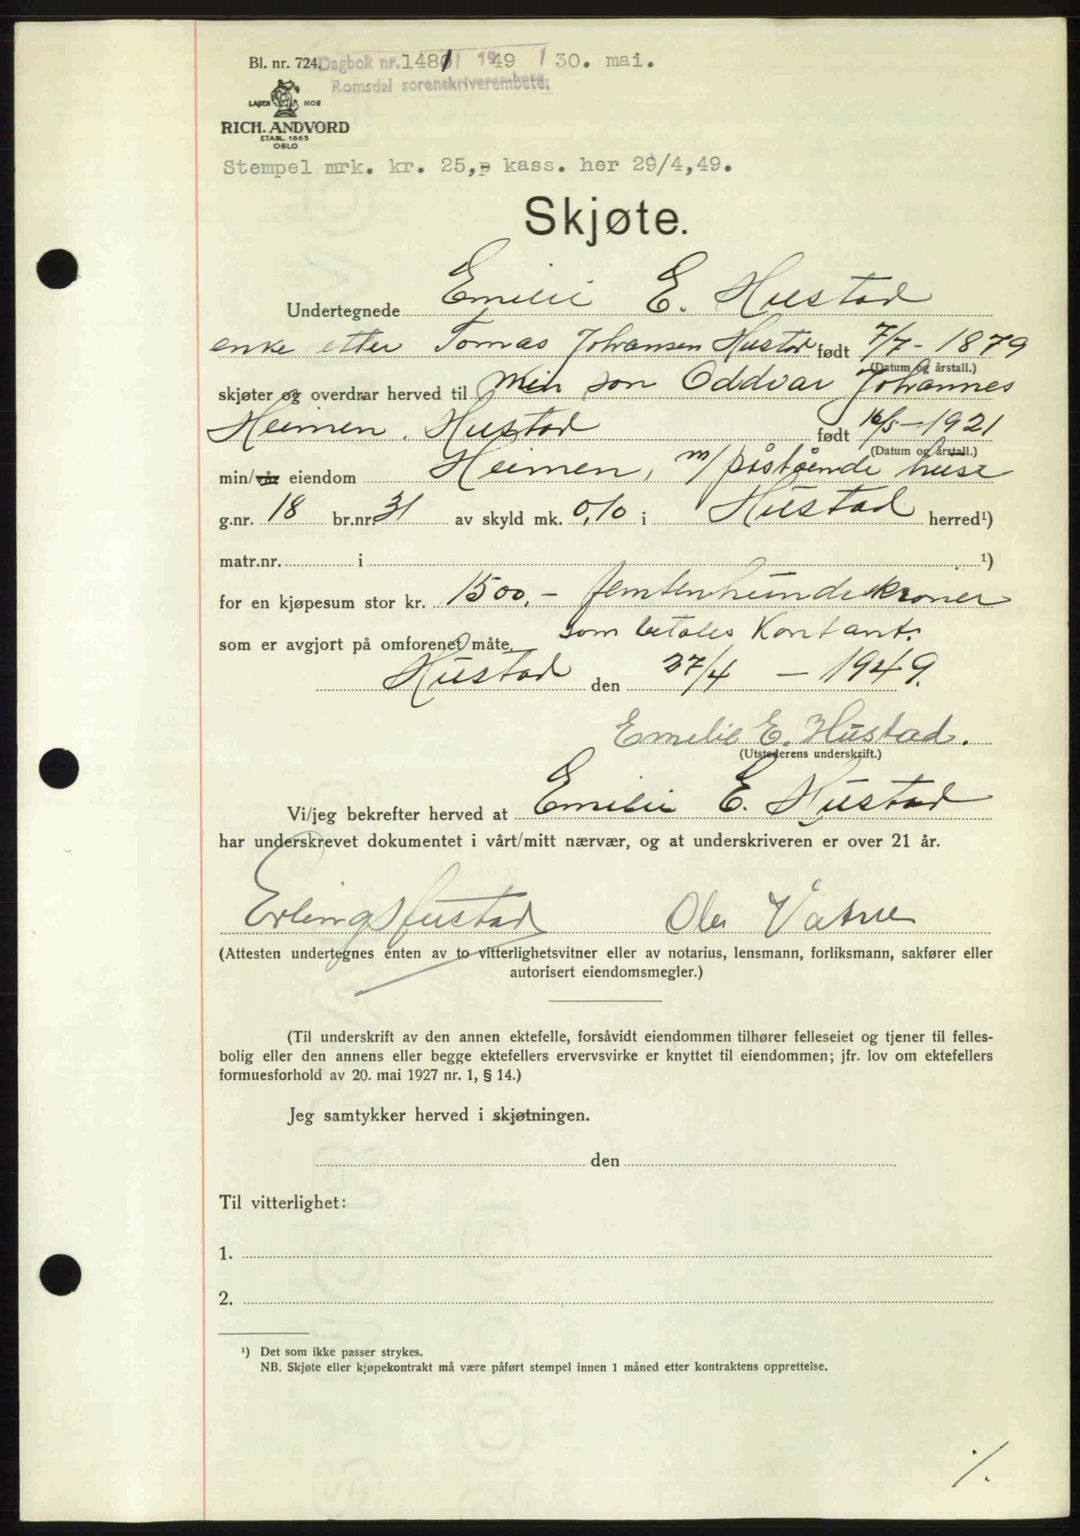 Bl. nr. 724. Dagbok nr. 1481 1949 / 30. mai.
Romsdal sorenskriverembete.
LAGER HOS
RICH. ANDVORD
ETABL. 1865
OSLO
Stempel mrk. kr. 25,- kass. her 29/4,49.
Skjøte.
Undertegnede Emilie E. Hustad
enke etter Tomas Johansen Hustad født 7/7 - 1879
(Datum og årstall.)
skjøter og overdrar herved til Min søn Oddvar Johannes
Heimen. Hustad født 16/5 - 1921
(Datum og årstall.)
min/vår eiendom Heimen, m/påstående huse
g.nr. 18 br.nr. 31 av skyld mk. 0,10 i Hustad herred¹)
matr.nr. i ¹)
for en kjøpesum stor kr. 1500.- femtenhundrekroner
som er avgjort på omforenet måte. som betales Kontant.
Hustad den 27/4 - 1949.
Emelie E. Hustad.
(Utstederens underskrift.)
Vi/jeg bekrefter herved at Emilie E. Hustad
har underskrevet dokumentet i vårt/mitt nærvær, og at underskriveren er over 21 år.
Erling Hustad Ola Vatne
(Attesten undertegnes enten av to vitterlighetsvitner eller av notarius, lensmann, forliksmann, sakfører eller
autorisert eiendomsmegler.)
(Til underskrift av den annen ektefelle, forsåvidt eiendommen tilhører felleseiet og tjener til felles-
bolig eller den annens eller begge ektefellers ervervsvirke er knyttet til eiendommen; jfr. lov om ektefellers
formuesforhold av 20. mai 1927 nr. 1, § 14.)
Jeg samtykker herved i skjøtningen.
den
Til vitterlighet:
1.
2.
¹) Det som ikke passer strykes.
NB. Skjøte eller kjøpekontrakt må være påført stempel innen 1 måned etter kontraktens opprettelse.
%.